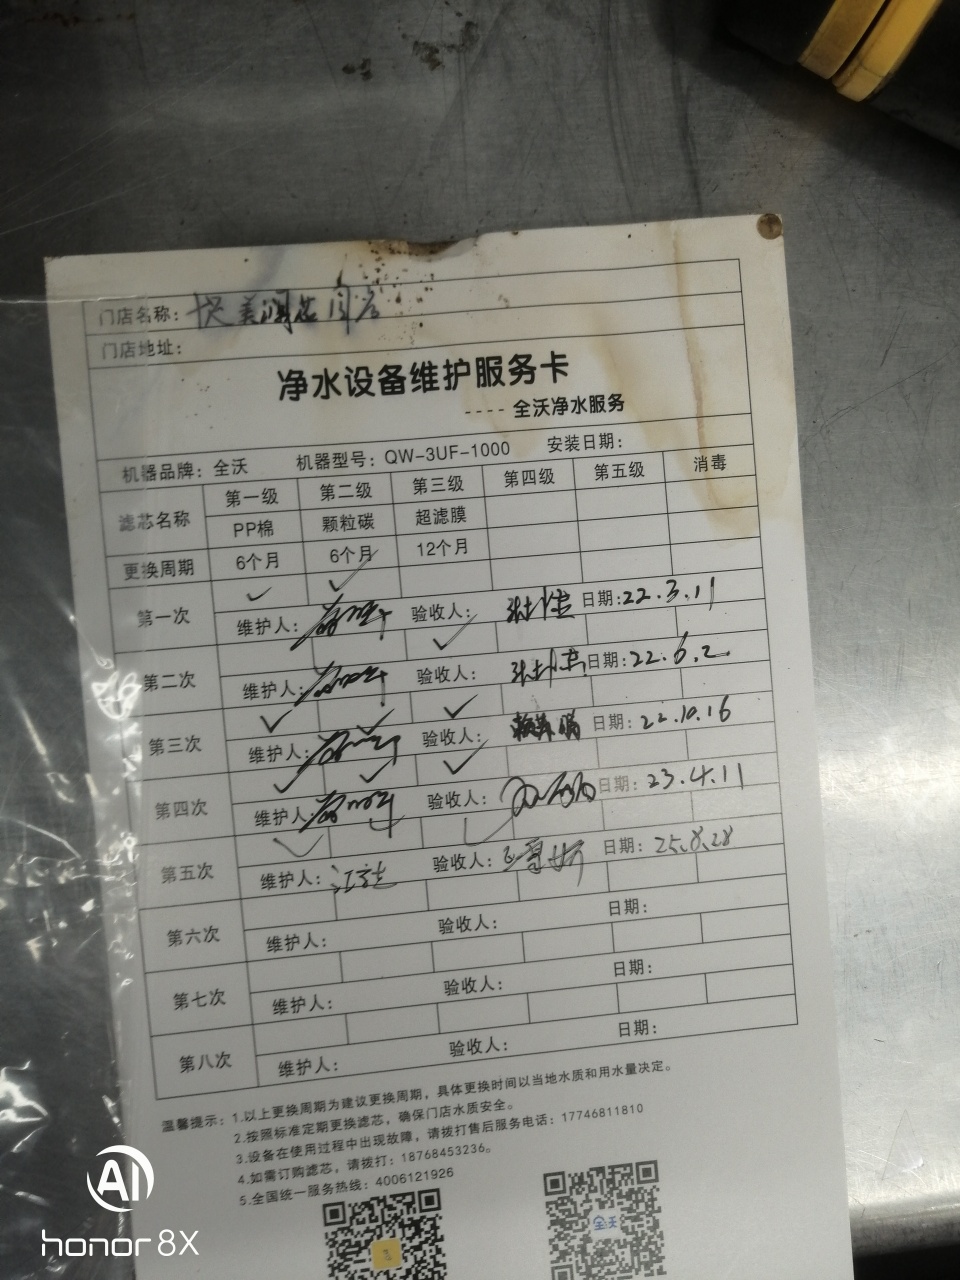 门店名称：
门店地址：
净水设备维护服务卡
----全沃净水服务
机器品牌：全沃 机器型号：QW-3UF-1000 安装日期：
滤芯名称 第一级 第二级 第三级 第四级 第五级 消毒
PP棉 颗粒碳 超滤膜
更换周期 6个月 6个月 12个月
第一次 ✓ ✓
维护人： 验收人： 日期：22.3.11
第二次 ✓
维护人： 验收人： 日期：22.6.2
第三次 ✓ ✓ ✓
维护人： 验收人： 日期：22.10.16
第四次 ✓ ✓ ✓
维护人： 验收人： 日期：23.4.11
第五次 ✓ ✓ ✓
维护人： 验收人： 日期：25.8.28
第六次
维护人： 验收人： 日期：
第七次
维护人： 验收人： 日期：
第八次
维护人： 验收人： 日期：
温馨提示：1.以上更换周期为建议更换周期，具体更换时间以当地水质和用水量决定。
2.按照标准定期更换滤芯，确保门店水质安全。
3.设备在使用过程中出现故障，请拨打售后服务电话：17746811810
4.如需订购滤芯，请拨打：18768453236。
5.全国统一服务热线：4006121926
全沃
AI
honor 8X